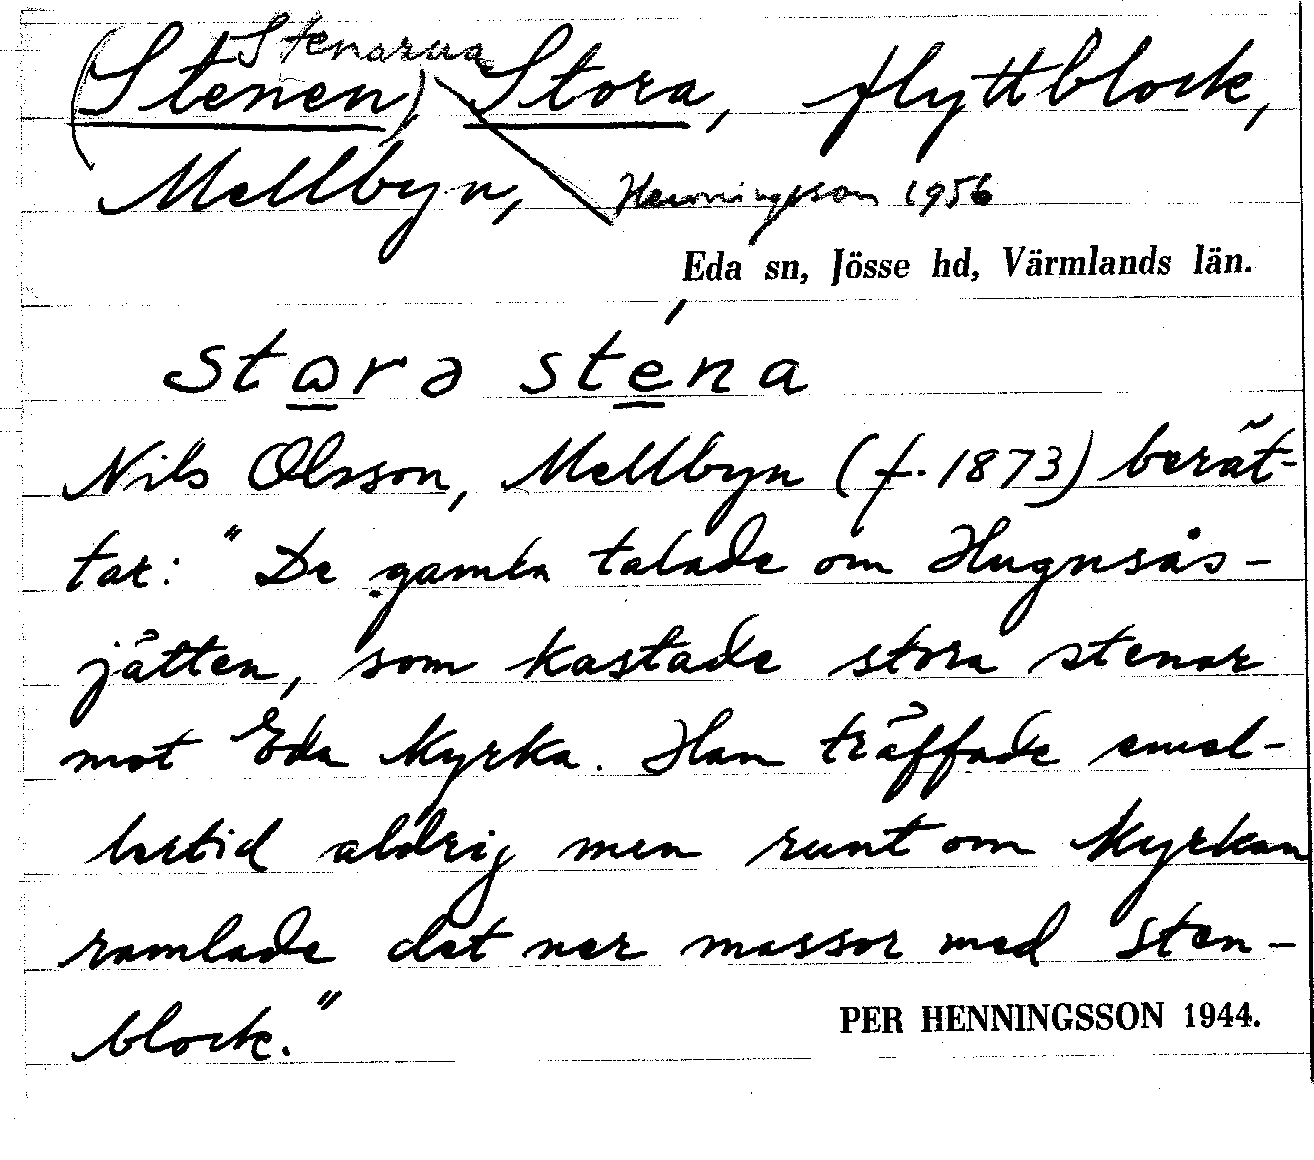 Stenarna
(Stenen) Stora, flyttblock,
Mellbyn, Henningsson 1956
Eda sn, Jösse hd, Värmlands län.
stɷrə sténa
Nils Olsson, Mellbyn (f. 1873) berät-
tar: "De gamla talade om Hugnsås-
jätten, som kastade stora stenar
mot Eda kyrka. Han träffade emel-
lertid aldrig men runt om kyrkan
ramlade det ner massor med sten-
block."
PER HENNINGSSON 1944.